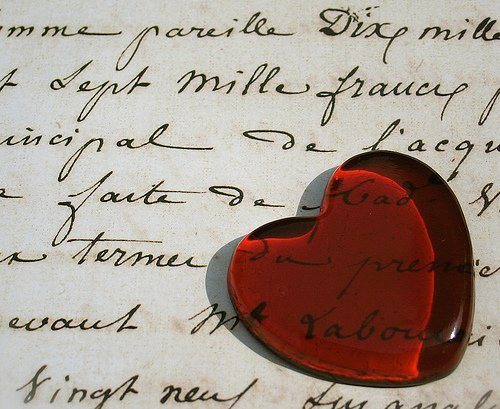 mme pareille Dix mille
t Sept mille francs p
incipal de l'acqu
e faite de Mad. V
ux termes du premie
evant Me Labou
Vingt neuf